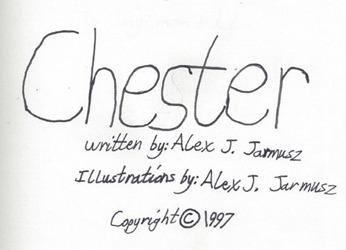 Chester
written by: Alex J. Jarmusz
Illustrations by: Alex J. Jarmusz
Copyright © 1997